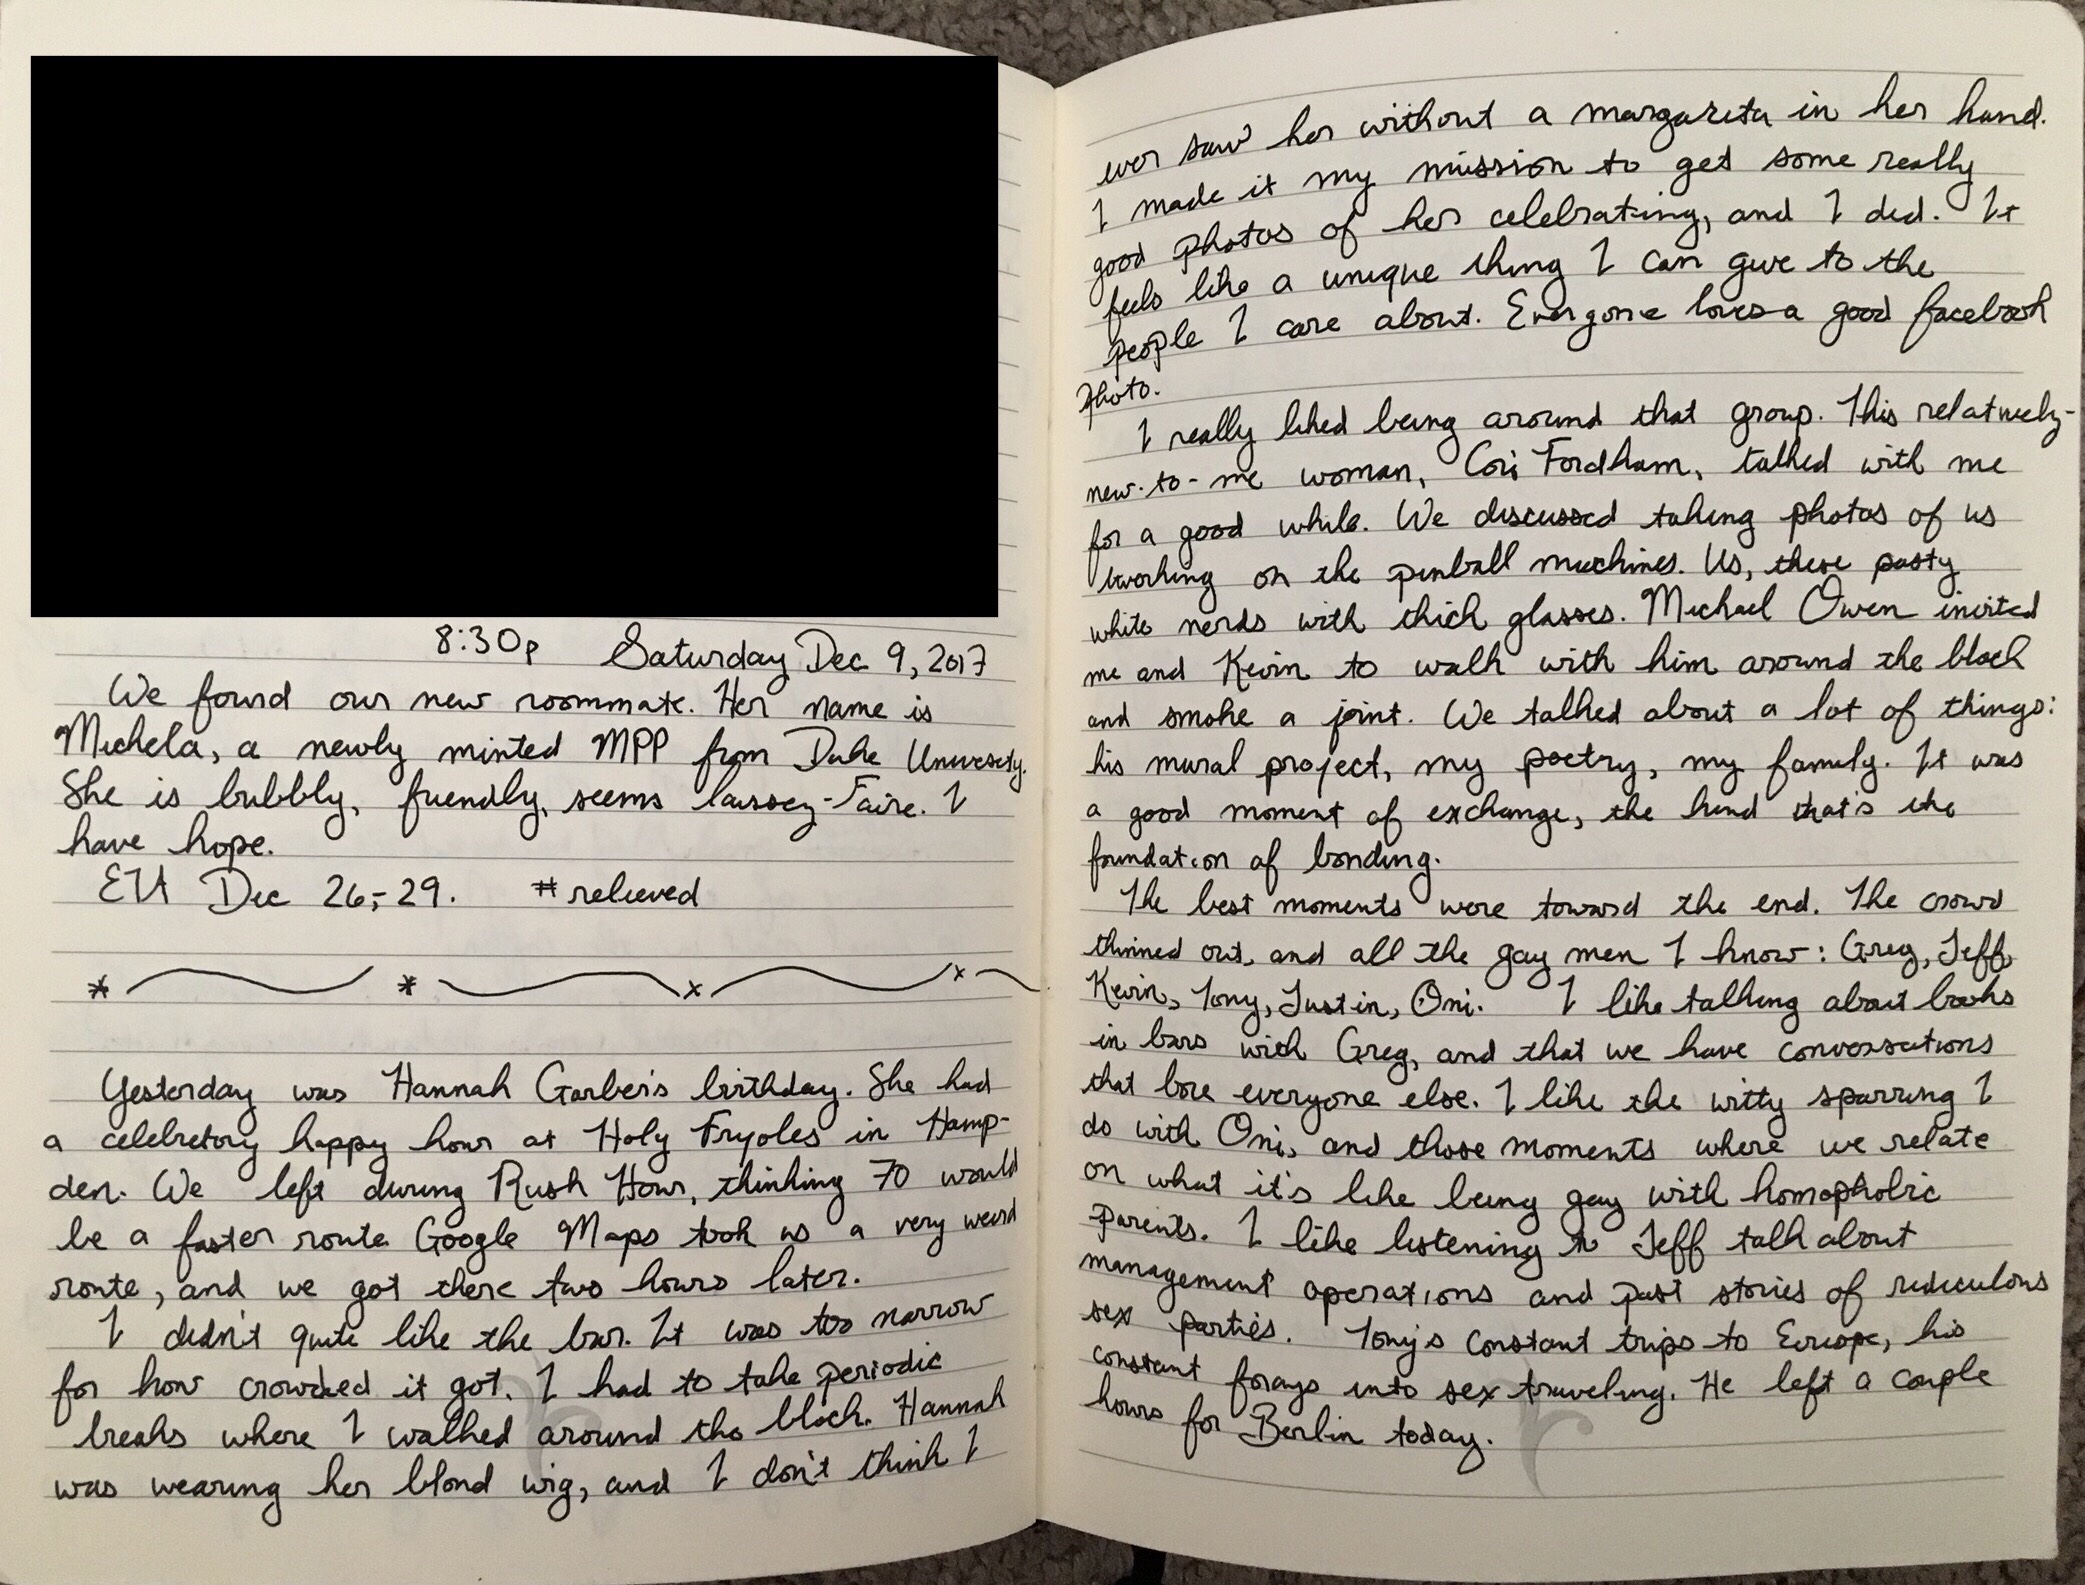 8:30p Saturday Dec 9, 2017
We found our new roommate. Her name is
Michela, a newly minted MPP from Duke University.
She is bubbly, friendly, seems lassey-Faire. I
have hope.
Dec 26,-29. #relieved
Yesterday was Hannah Garber's birthday. She had
a celebretory happy hour at Holy Fryoles in Hamp-
den. We left during Rush Hour, thinking 70 would
be a faster route. Google Maps took us a very weird
route, and we got there two hours later.
I didn't quite like the bar. It was too narrow
for how crowded it got. I had to take periodic
breaks where I walked around the block. Hannah
was wearing her blond wig, and I don't think I
ever saw her without a margareta in her hand.
I made it my mission to get some really
good photos of her celebrating, and I did. It
feels like a unique thing I can give to the
people I care about. Everyone loves a good facebook
photo.
I really liked being around that group. This relatively-
new-to-me woman, Cori Fordham, talked with me
for a good while. We discussed taking photos of us
twerking on the pinball machines. Us, these pasty
white nerds with thick glasses. Michael Owen invited
me and Kevin to walk with him around the block
and smoke a joint. We talked about a lot of things:
his mural project, my poetry, my family. It was
a good moment of exchange, the kind that's the
foundation of bonding.
The best moments were toward the end. The crowd
thinned out, and all the gay men I know: Greg, Jeff,
Kevin, Tony, Justin, Oni. I like talking about books
in bars with Greg, and that we have conversations
that bore everyone else. I like the witty sparring I
do with Oni, and those moments where we relate
on what it's like being gay with homopholic
parents. I like listening to Jeff talk about
management operations and past stories of rediculous
sex parties. Tony's constant trips to Europe, his
constant forays into sex traveling. He left a couple
hours for Berlin today.